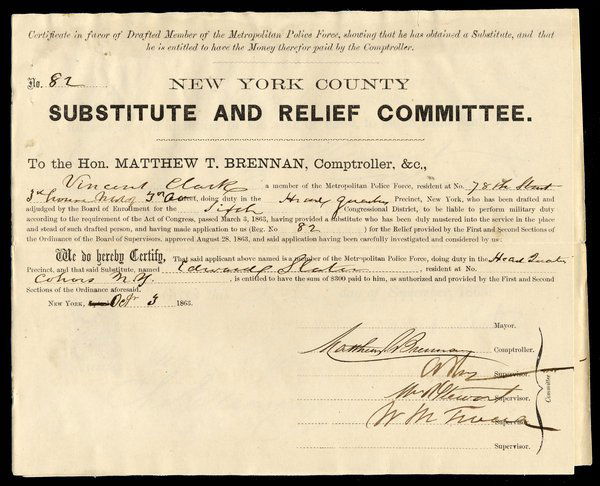 Certificate in favor of Drafted Member of the Metropolitan Police Force, showing that he has obtained a Substitute, and that
he is entitled to have the Money therefor paid by the Comptroller.
No. 82
NEW YORK COUNTY
SUBSTITUTE AND RELIEF COMMITTEE.
To the Hon. MATTHEW T. BRENNAN, Comptroller, &c.,
Vincent Clark a member of the Metropolitan Police Force, resident at No. 78th Street
3rd house 3rd doing duty in the Head Quarters Precinct, New York, who has been drafted and
adjudged by the Board of Enrollment for the Fifth Congressional District, to be liable to perform military duty
according to the requirement of the Act of Congress, passed March 3, 1863, having provided a substitute who has been duly mustered into the service in the place
and stead of such drafted person, and having made application to us (Reg. No 82 ) for the Relief provided by the First and Second Sections of
the Ordinance of the Board of Supervisors, approved August 28, 1863, and said application having been carefully investigated and considered by us:
We do hereby Certify, That said applicant above named is a member of the Metropolitan Police Force, doing duty in the Head Quarters
Precinct, and that said Substitute, named Edward Slater, resident at No.
Cohoes N.Y. , is entitled to have the sum of $300 paid to him, as authorized and provided by the First and Second
Sections of the Ordinance aforesaid.
NEW YORK, Octr 3 1863.
Mayor.
Matthew T. Brennan Comptroller.
Supervisor.
Wm R Stewart Supervisor.
W M Tweed
Supervisor.
Committee.